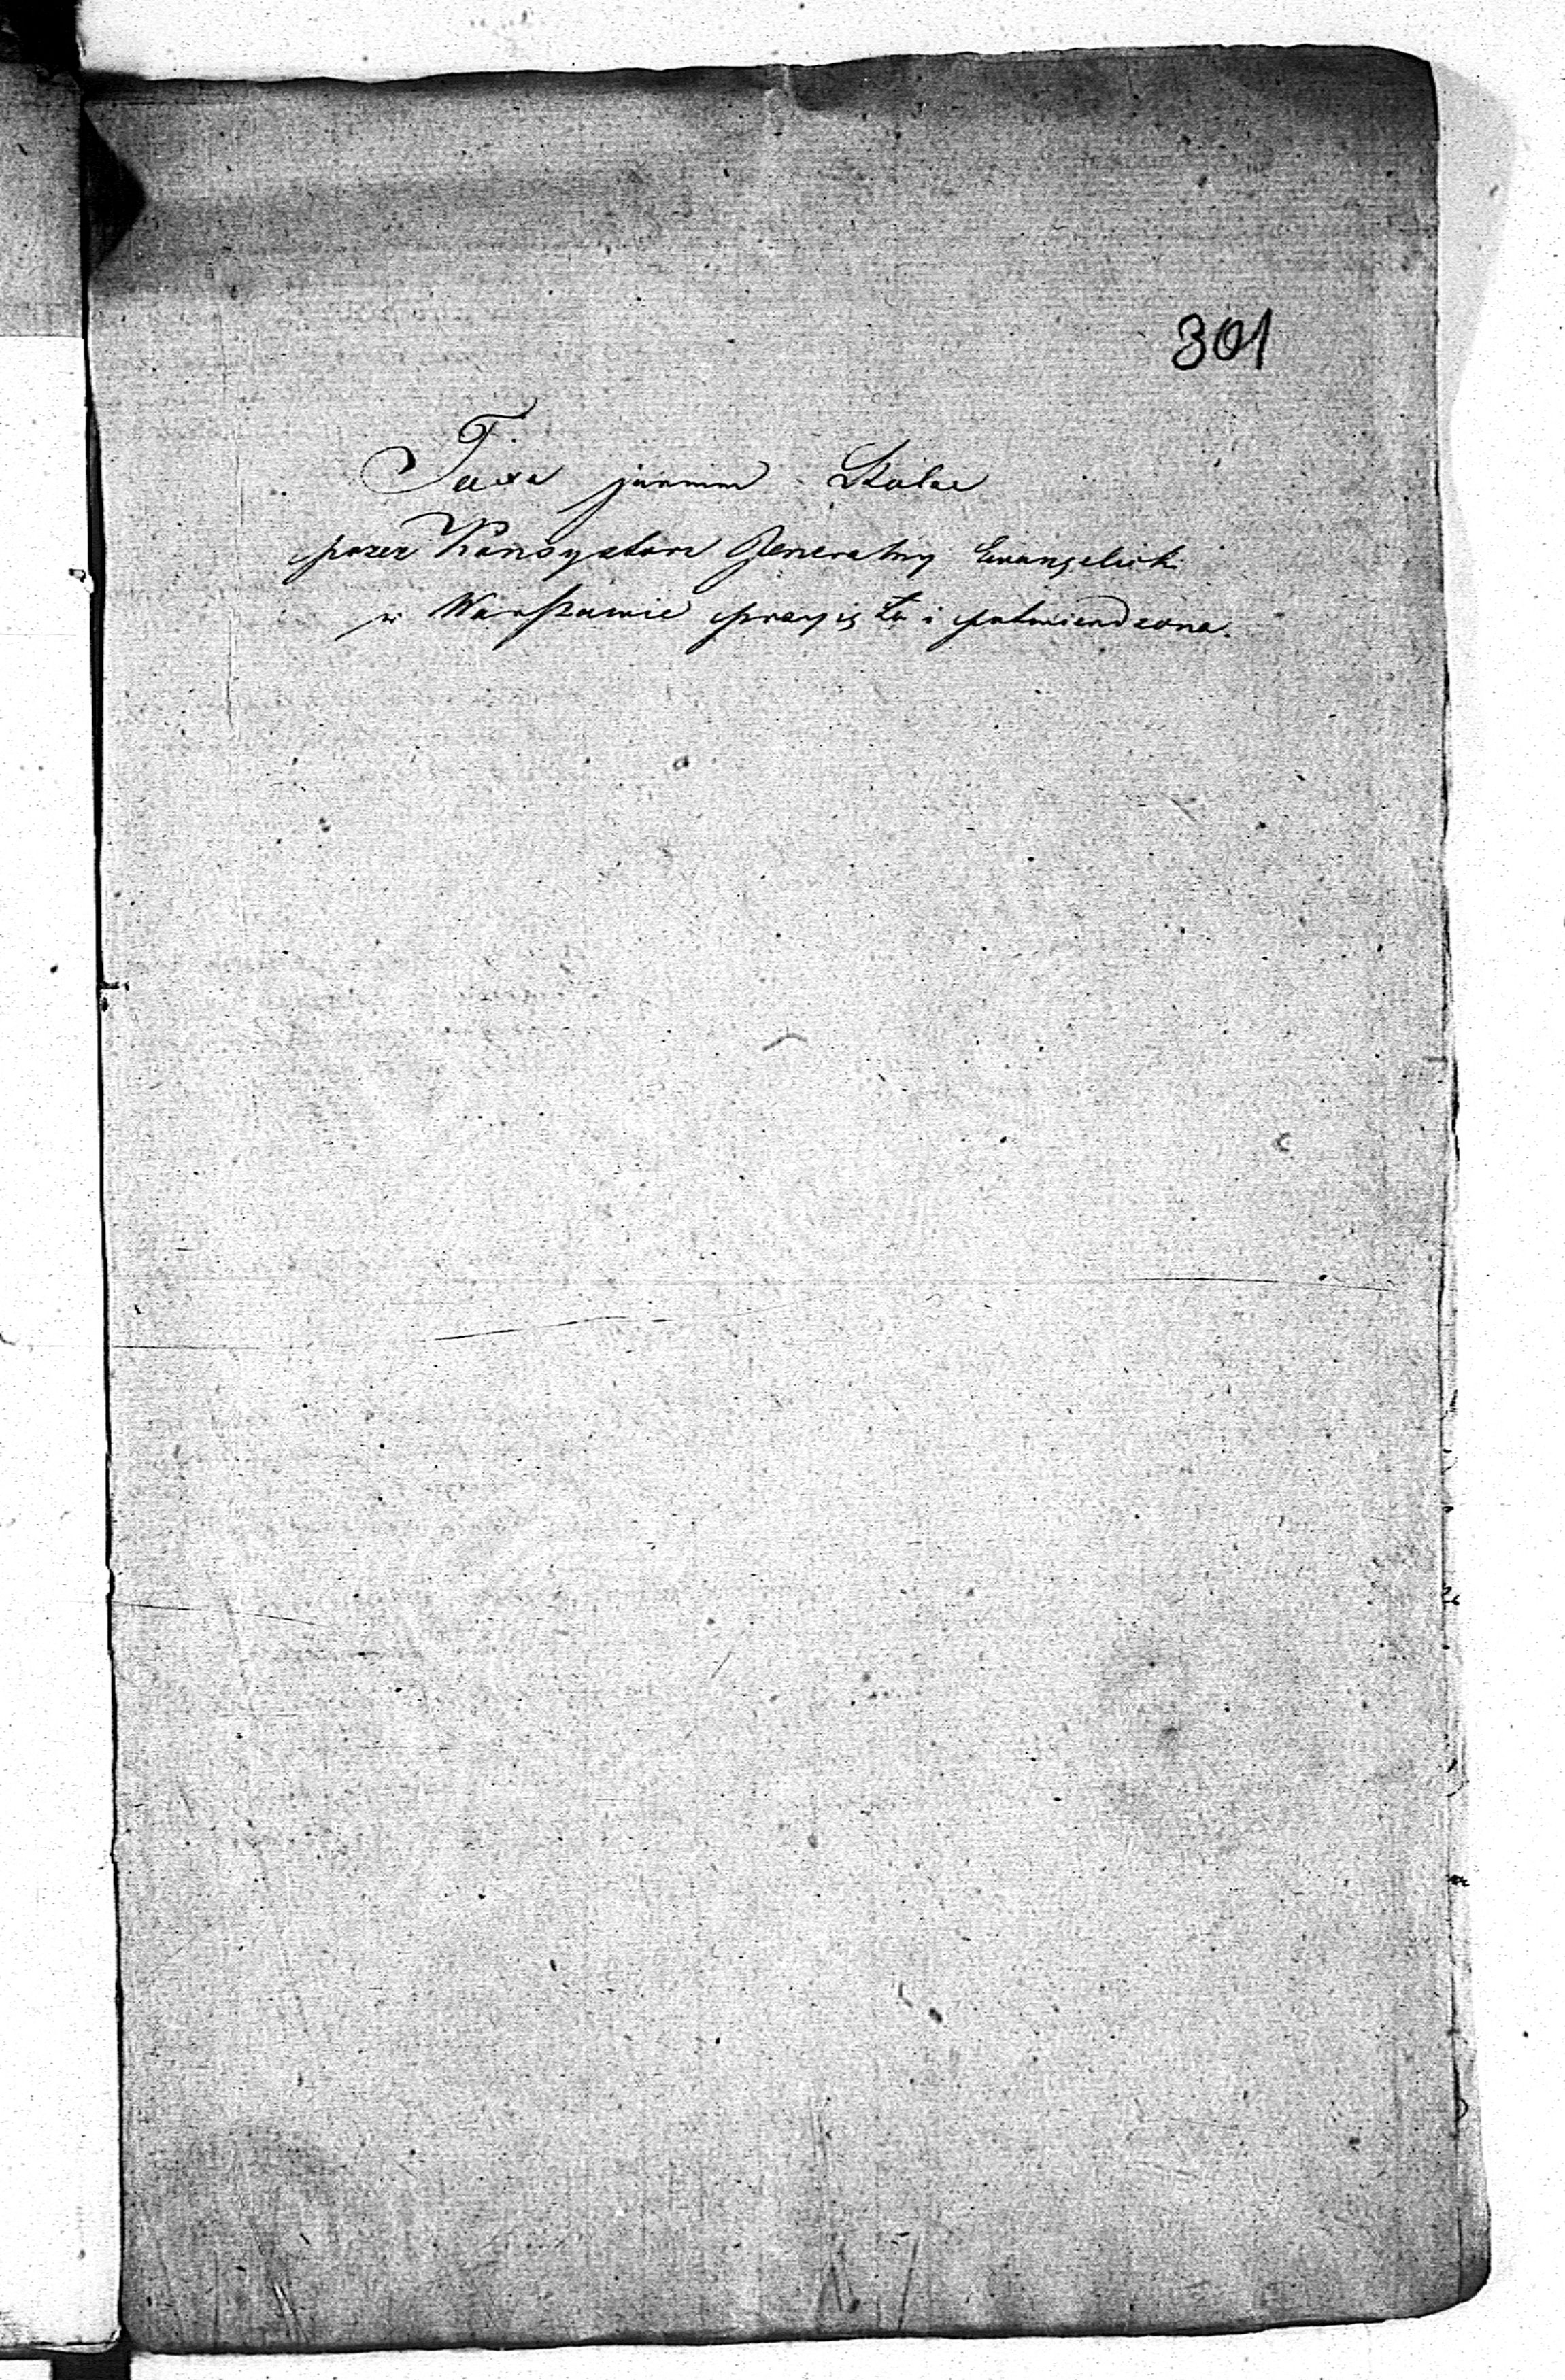 301
Taxa jurium Stolae
przez Konsystorz Generalny Ewangelicki
w Warszawie przyięta i potwierdzona.